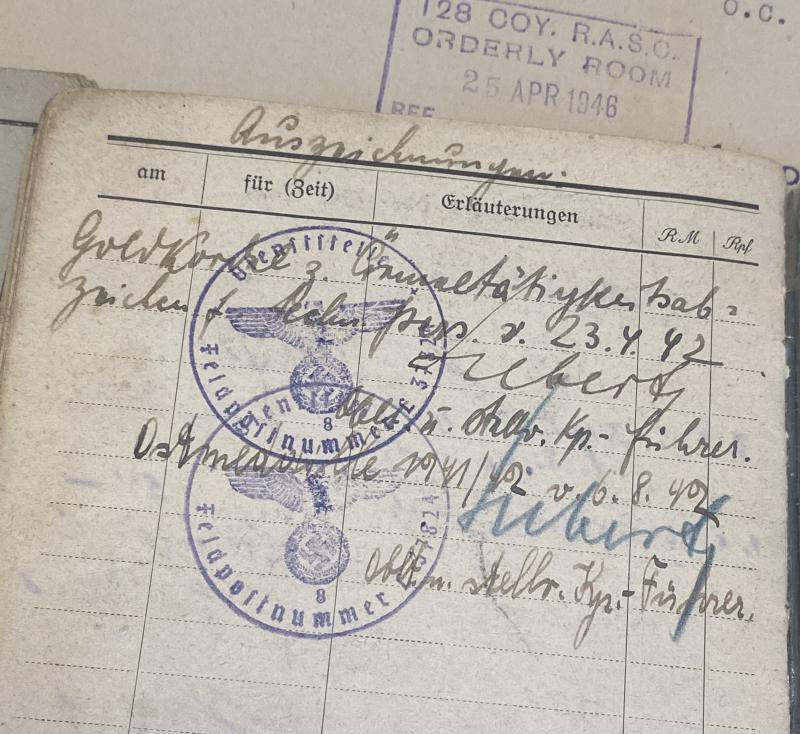 128 COY. R.A.S.C.
O.C.
ORDERLY ROOM
25 APR 1946
Auszeichnungen:
am
für (Zeit)
Erläuterungen
RM
Rpf
z. Ärmeltätigkeitsab-
zeichen f. techn. Pers. v. 23.4.42
Dienststelle
Feldpostnummer
8
Oblt. u. stellv. Kp.-Führer.
Ostmedaille 1941/42 v. 6.8.42
Feldpostnummer
8
Oblt. u. stellv. Kp.-Führer.